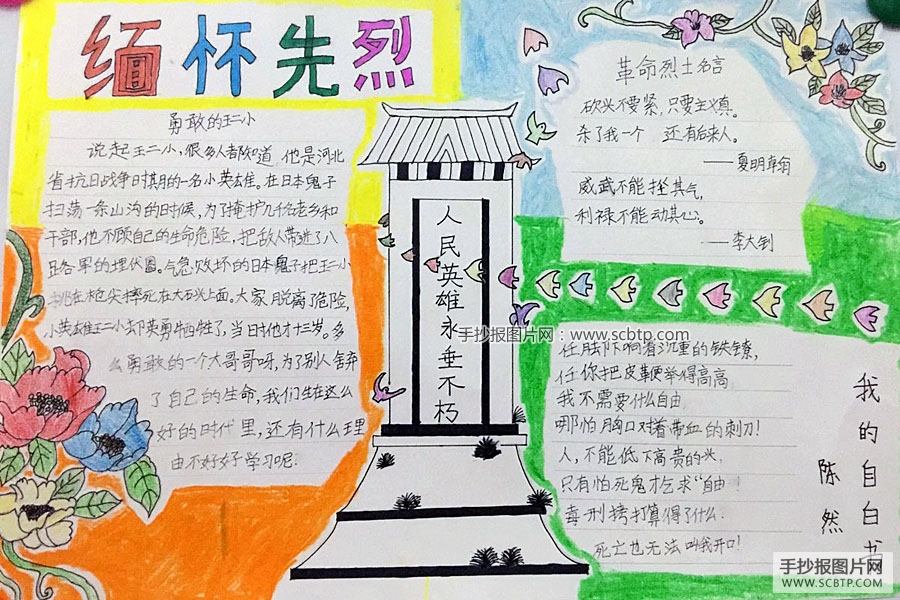 缅怀先烈
勇敢的王二小
说起王二小,很多人都知道 他是河北
省抗日战争时期的一名小英雄。在日本鬼子
扫荡一条山沟的时候,为了掩护几千名老乡和
干部,他不顾自己的生命危险,把敌人带进了八
路军的埋伏圈。气急败坏的日本鬼子把王二小
挑在枪尖摔死在大石头上面。大家脱离了危险,
小英雄王二小却英勇牺牲了,当时他才十三岁。多
么勇敢的一个大哥哥呀,为了别人舍弃
了自己的生命,我们生在这么
好的时代里,还有什么理
由不好好学习呢?
人民英雄永垂不朽
革命烈士名言
砍头不要紧,只要主义真。
杀了我一个 还有后来人。
——夏明翰
威武不能挫其气,
利禄不能动其心。
——李大钊
手抄报图片网:www.scbtp.com
任脚下响着沉重的铁镣,
任你把皮鞭举得高高
我不需要什么自由
哪怕胸口对着带血的刺刀!
人,不能低下高贵的头
只有怕死鬼才乞求“自由
毒刑拷打算得了什么
死亡也无法叫我开口!
我的自白书
陈然
手抄报图片网
WWW.SCBTP.COM